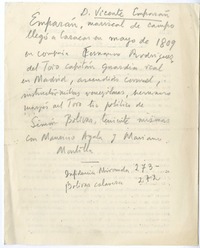 D. Vicente Emparán
Emparan, mariscal de campo
llegó a Caracas en mayo de 1809
en compía Fernando Rodriguez
del Toro capitán guardia real
en Madrid, ascendido coronel,
milicias venezolanas, hermano
marqués del Toro tio político de
Simón Bolívar, teniente milicias
con Mauricio Ayala y Mariano
Montilla
Miranda 273 -
Bolívar 272 -